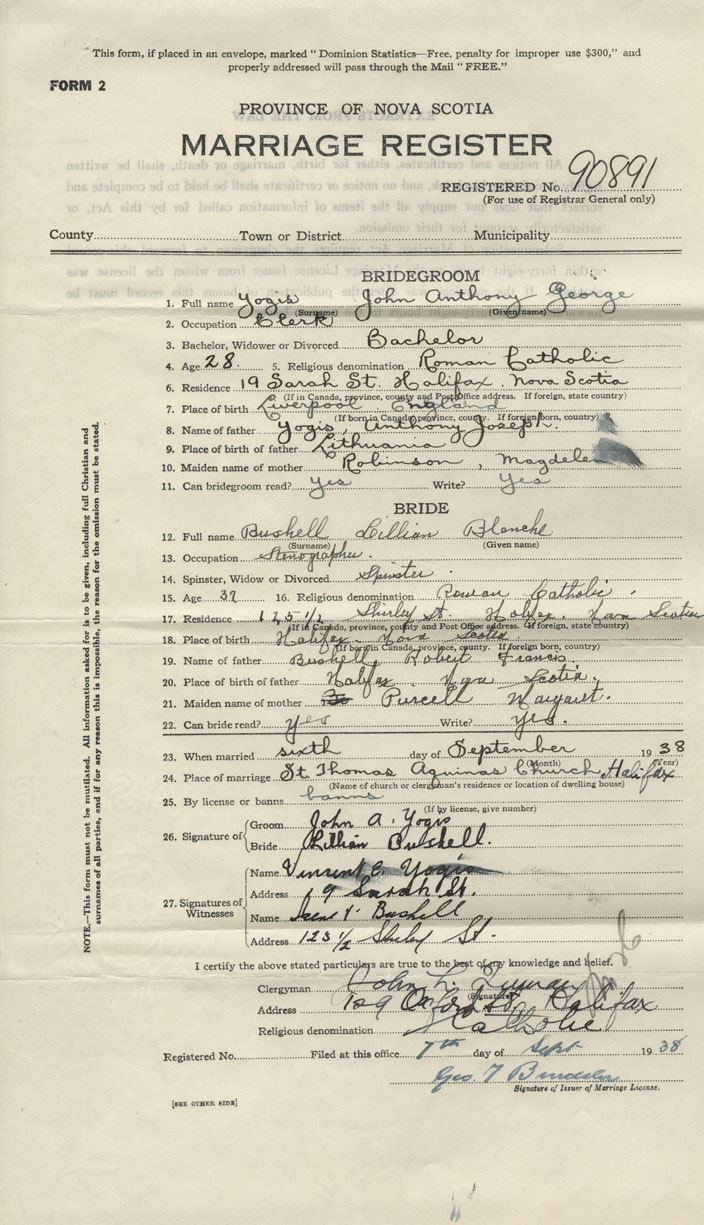 This form, if placed in an envelope, marked "Dominion Statistics—Free, penalty for improper use $300," and
properly addressed will pass through the Mail "FREE."
FORM 2
PROVINCE OF NOVA SCOTIA
MARRIAGE REGISTER
REGISTERED No. 90891
(For use of Registrar General only)
County Town or District Municipality
BRIDEGROOM
1. Full name Yogis John Anthony George
(Surname) (Given name)
2. Occupation Clerk
3. Bachelor, Widower or Divorced Bachelor
4. Age 28 5. Religious denomination Roman Catholic
6. Residence 19 Sarah St. Halifax. Nova Scotia
(If in Canada, province, county and Post Office address. If foreign, state country)
7. Place of birth Liverpool England
(If born in Canada, province, county. If foreign born, country)
8. Name of father Yogis, Anthony Joseph.
9. Place of birth of father Lithuania
10. Maiden name of mother Robinson, Magdelen
11. Can bridegroom read? yes Write? Yes
BRIDE
12. Full name Bushell Lillian Blanche
(Surname) (Given name)
13. Occupation Stenographer.
14. Spinster, Widow or Divorced Spinster.
15. Age 16. Religious denomination Roman Catholic.
17. Residence Shirley St. Halifax. Nova Scotia
(If in Canada, province, county and Post Office address. If foreign, state country)
18. Place of birth Halifax Nova Scotia
(If born in Canada, province, county. If foreign born, country)
19. Name of father Bushell, Robert Francis.
20. Place of birth of father Halifax Nova Scotia.
21. Maiden name of mother Purcell Margaret.
22. Can bride read? yes Write? yes.
23. When married sixth day of September 1938
(Month) (Year)
24. Place of marriage St Thomas Aquinas Church, Halifax
(Name of church or clergyman's residence or location of dwelling house)
25. By license or banns banns
(If by license, give number)
26. Signature of Groom John A. Yogis
Bride Lillian Bushell.
27. Signatures of Witnesses Name Vincent C. Yogis
Address 19 Sarah St.
Name Bushell
Address 123 1/2 Shirley St.
I certify the above stated particulars are true to the best of my knowledge and belief.
Clergyman John L.
(Signature)
Address Oxford St. Halifax
Religious denomination Catholic
Registered No. Filed at this office 7th day of Sept 1938
Geo. T
Signature of Issuer of Marriage License.
[SEE OTHER SIDE]
NOTE.—This form must not be mutilated. All information asked for is to be given, including full Christian and
surnames of all parties, and if for any reason this is impossible, the reason for the omission must be stated.